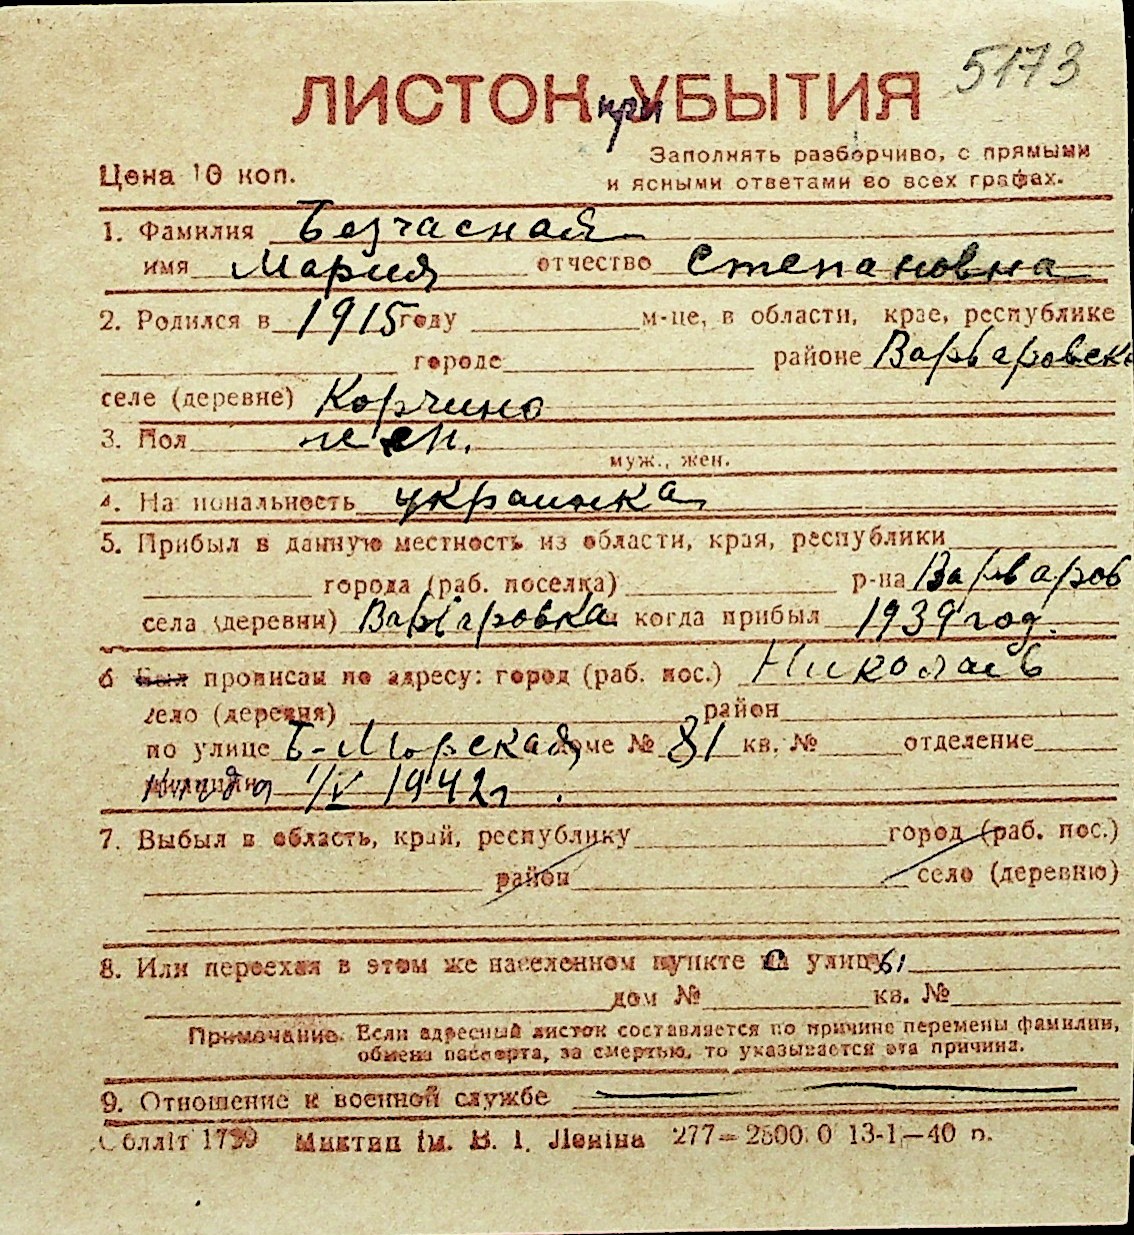 5173
ЛИСТОК при УБЫТИЯ
Цена 10 коп.
Заполнять разборчиво, с прямыми
и ясными ответами во всех графах.
1. Фамилия Безчасная
имя Мария отчество Степановна
2. Родился в 1915 году м-це, в области, крае, республике
городе районе Варваровск
селе (деревне) Корчино
3. Пол жен.
муж., жен.
4. Национальность украинка
5. Прибыл в данную местность из области, края, республики
города (раб. поселка) р-на Варваров
села (деревни) Варваровка и когда прибыл 1939 год.
6 Был прописан по адресу: город (раб. пос.) Николаев
село (деревня) район
по улице Б-Морская доме № 81 кв. № отделение
милиции 1/IV 1942 г.
7. Выбыл в область, край, республику город (раб. пос.)
район село (деревню)
8. Или переехал в этом же населенном пункте с улицы
дом № кв. №
Примечание. Если адресный листок составляется по причине перемены фамилии,
обмена паспорта, за смертью, то указывается эта причина.
9. Отношение к военной службе
Облліт 1799 Миктип ім. В. І. Леніна 277—2500.0 13-1—40 р.